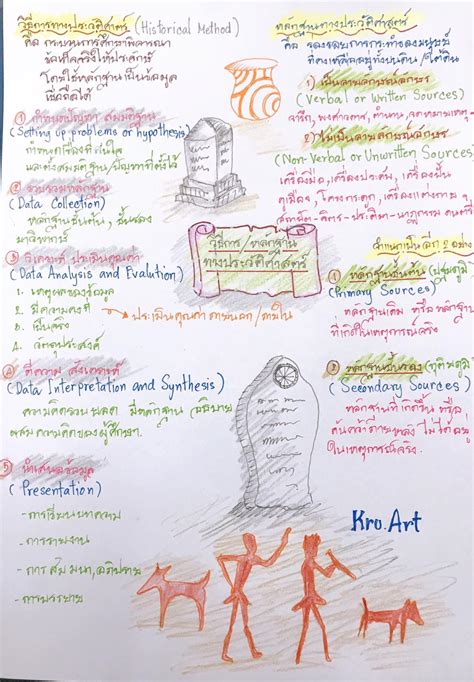 วิธีการทางประวัติศาสตร์ (Historical Method)
คือ กระบวนการศึกษาพิจารณา
โดยใช้หลักฐานเป็นข้อมูล
เชื่อถือได้
① กำหนดปัญหา สมมติฐาน
(Setting up problems or hypothesis)
② รวบรวมหลักฐาน
(Data Collection)
หลักฐานชั้นต้น, ชั้นรอง
③ วิเคราะห์ ประเมินคุณค่า
(Data Analysis and Evalution)
1. เหตุผลของข้อมูล
2. มีความคงที่
3. เป็นจริง
4. วัตถุประสงค์
→ ประเมินคุณค่า ภายนอก/ภายใน
④ ตีความ สังเคราะห์
(Data Interpretation and Synthesis)
⑤ นำเสนอข้อมูล
(Presentation)
- การเขียนบทความ
- การรายงาน
- การสัมมนา, อภิปราย
- การบรรยาย
วิธีการ/หลักฐาน
ทางประวัติศาสตร์
หลักฐานทางประวัติศาสตร์
คือ ร่องรอยการกระทำของมนุษย์
1) เป็นลายลักษณ์อักษร
(Verbal or Written Sources)
จารึก, พงศาวดาร, ตำนาน, จดหมายเหตุ
2) ไม่เป็นลายลักษณ์อักษร
(Non-Verbal or Unwritten Sources)
เครื่องมือ, เครื่องประดับ, เครื่องปั้น
จำแนกเป็นอีก 2 อย่าง
① หลักฐานชั้นต้น (ปฐมภูมิ)
(Primary Sources)
หลักฐานเดิม หรือ หลักฐาน
ที่เกิดในเหตุการณ์จริง
② หลักฐานชั้นรอง (ทุติยภูมิ)
(Secondary Sources)
หลักฐานที่เกิดขึ้น หรือ
ค้นคว้าภายหลัง ไม่ได้อยู่
ในเหตุการณ์จริง
Kro.Art